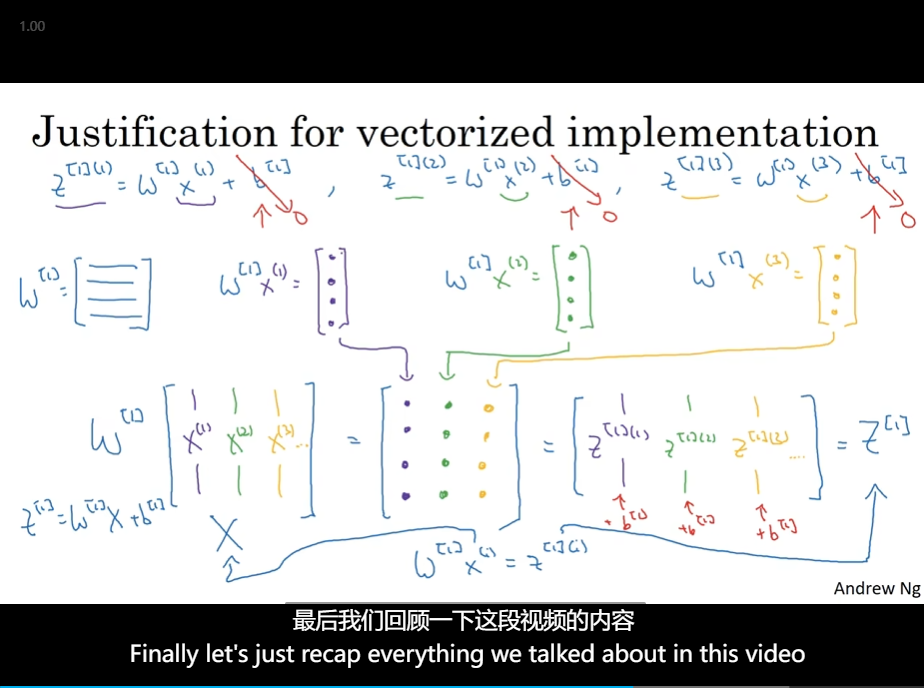 1.00
Justification for vectorized implementation
z^{[1](1)} = W^{[1]} x^{(1)} + b^{[1]} , z^{[1](2)} = W^{[1]} x^{(2)} + b^{[1]} , z^{[1](3)} = W^{[1]} x^{(3)} + b^{[1]}
0 0 0
W^{[1]} = [ ] W^{[1]} x^{(1)} = [ ] W^{[1]} x^{(2)} = [ ] W^{[1]} x^{(3)} = [ ]
W^{[1]} [ x^{(1)} x^{(2)} x^{(3)} ... ] = [ ] = [ z^{[1](1)} z^{[1](2)} z^{[1](3)} .... ] = Z^{[1]}
+ b^{[1]} + b^{[1]} + b^{[1]}
Z^{[1]} = W^{[1]} X + b^{[1]}
X
W^{[1]} x^{(i)} = z^{[1](i)}
Andrew Ng
最后我们回顾一下这段视频的内容
Finally let's just recap everything we talked about in this video